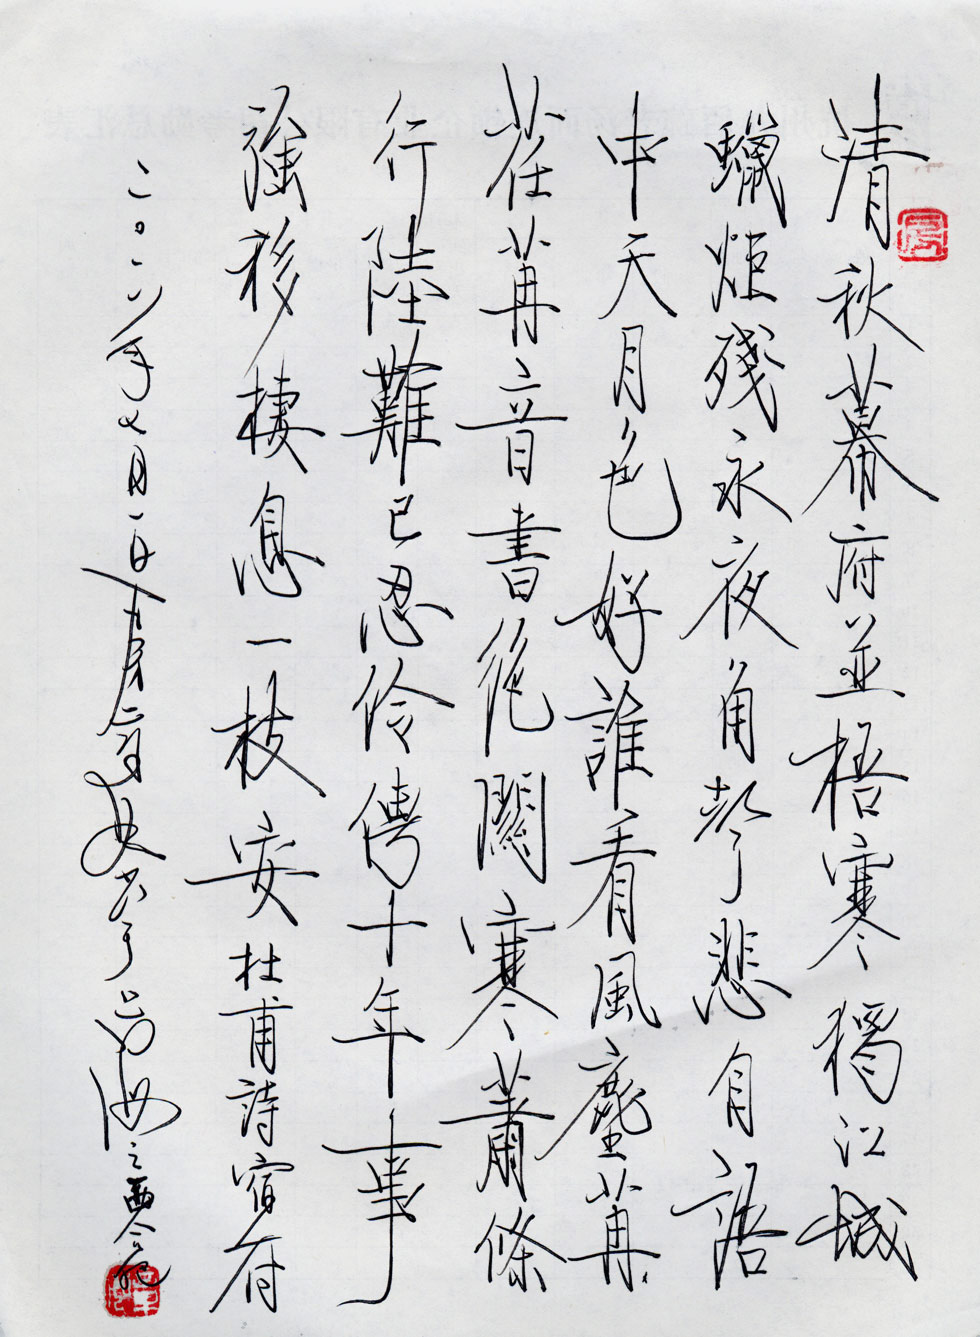 清秋幕府並梧寒獨江城
蠟炬殘永夜角聲悲自語
中天月色好誰看風塵苒
荏苒音書絕關寒蕭條
行陸難已忍伶俜十年事
強移棲息一枝安杜甫詩宿府
二〇一六年七月一日 上海之西